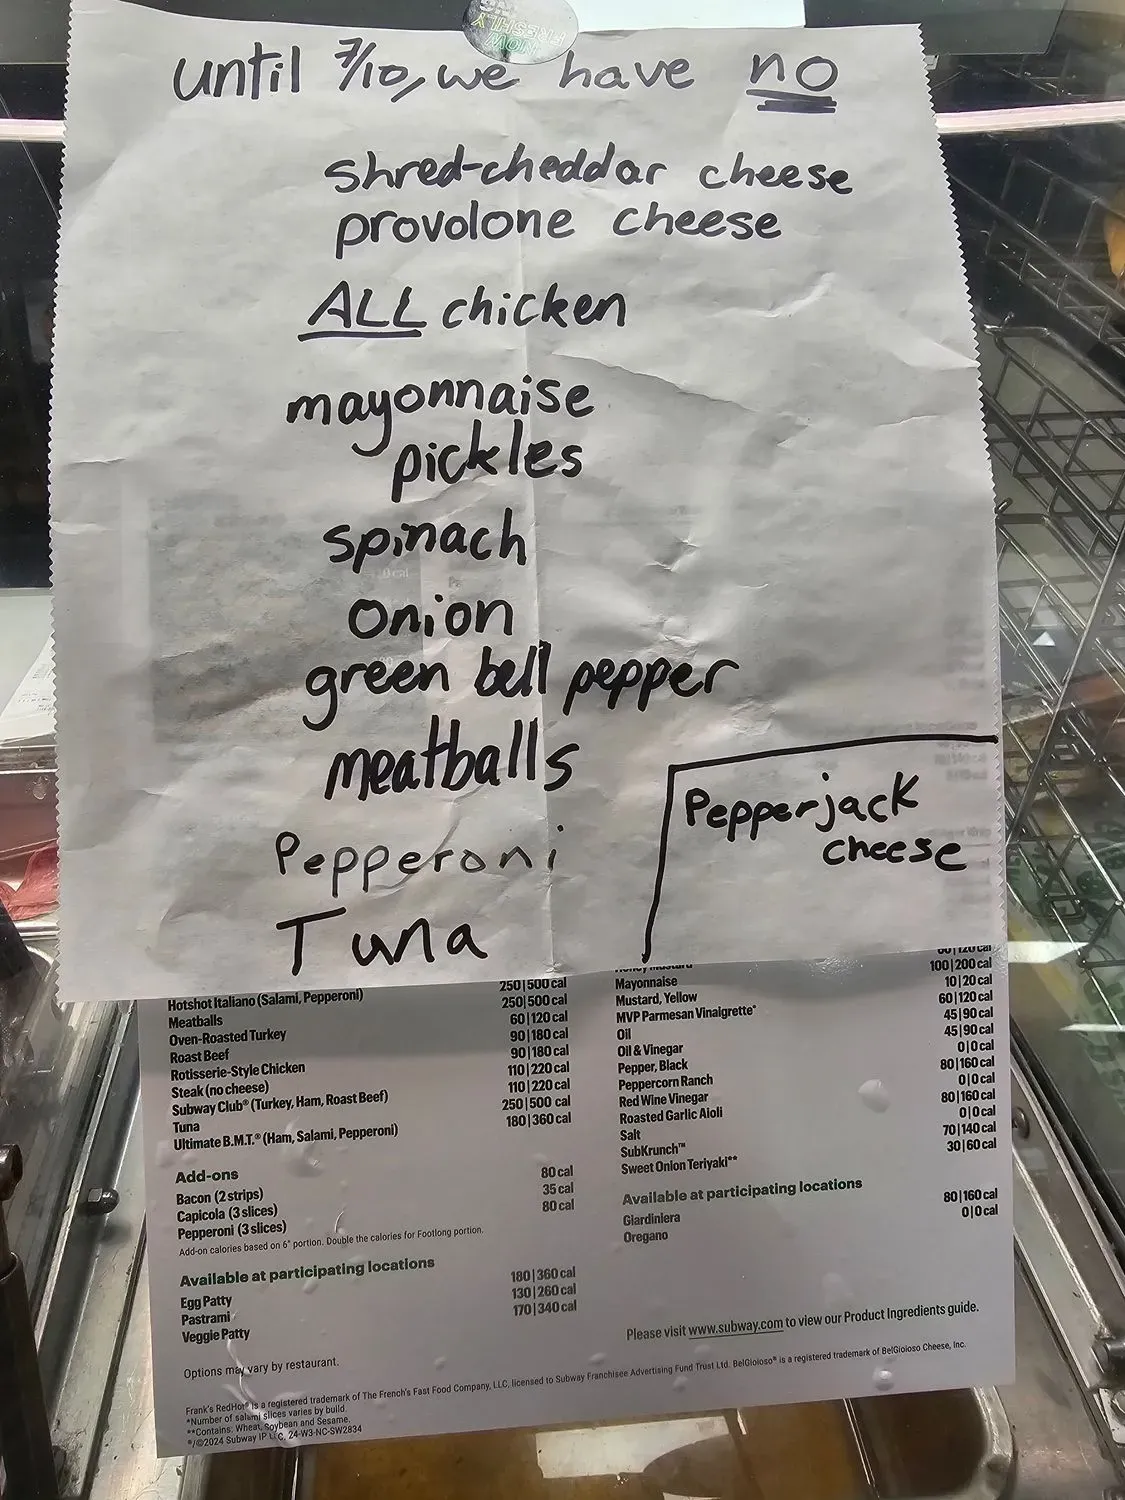 NOW
FRESHLY
until 7/10, we have no
shred-cheddar cheese
provolone cheese
ALL chicken
mayonnaise
pickles
spinach
onion
green bell pepper
meatballs
Pepperoni
Tuna
Pepperjack
cheese
250|500 cal
Hotshot Italiano (Salami, Pepperoni) 250|500 cal
Meatballs 60|120 cal
Oven-Roasted Turkey 90|180 cal
Roast Beef 90|180 cal
Rotisserie-Style Chicken 110|220 cal
Steak (no cheese) 110|220 cal
Subway Club® (Turkey, Ham, Roast Beef) 250|500 cal
Tuna 180|360 cal
Ultimate B.M.T.® (Ham, Salami, Pepperoni)
Add-ons
Bacon (2 strips) 80 cal
Capicola (3 slices) 35 cal
Pepperoni (3 slices) 80 cal
Add-on calories based on 6" portion. Double the calories for Footlong portion.
Available at participating locations
Egg Patty 180|360 cal
Pastrami 130|260 cal
Veggie Patty 170|340 cal
Options may vary by restaurant.
Honey Mustard
Mayonnaise 100|200 cal
Mustard, Yellow 10|20 cal
MVP Parmesan Vinaigrette* 60|120 cal
Oil 45|90 cal
Oil & Vinegar 45|90 cal
Pepper, Black 0|0 cal
Peppercorn Ranch 80|160 cal
Red Wine Vinegar 0|0 cal
Roasted Garlic Aioli 80|160 cal
Salt 0|0 cal
SubKrunch™ 70|140 cal
Sweet Onion Teriyaki** 30|60 cal
Available at participating locations
Giardiniera 80|160 cal
Oregano 0|0 cal
Please visit www.subway.com to view our Product Ingredients guide.
Frank's RedHot® is a registered trademark of The French's Fast Food Company, LLC, licensed to Subway Franchisee Advertising Fund Trust Ltd. BelGioioso® is a registered trademark of BelGioioso Cheese, Inc.
*Number of salami slices varies by build.
**Contains: Wheat, Soybean and Sesame.
®/©2024 Subway IP LLC, 24-W3-NC-SW2834